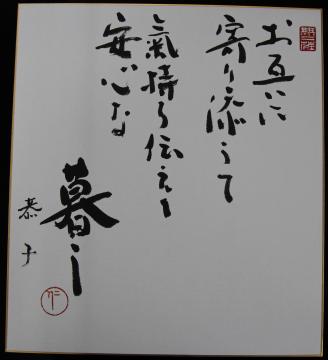 お互いに
寄り添うて
氣持ち伝え
安心な
暮し
恭子